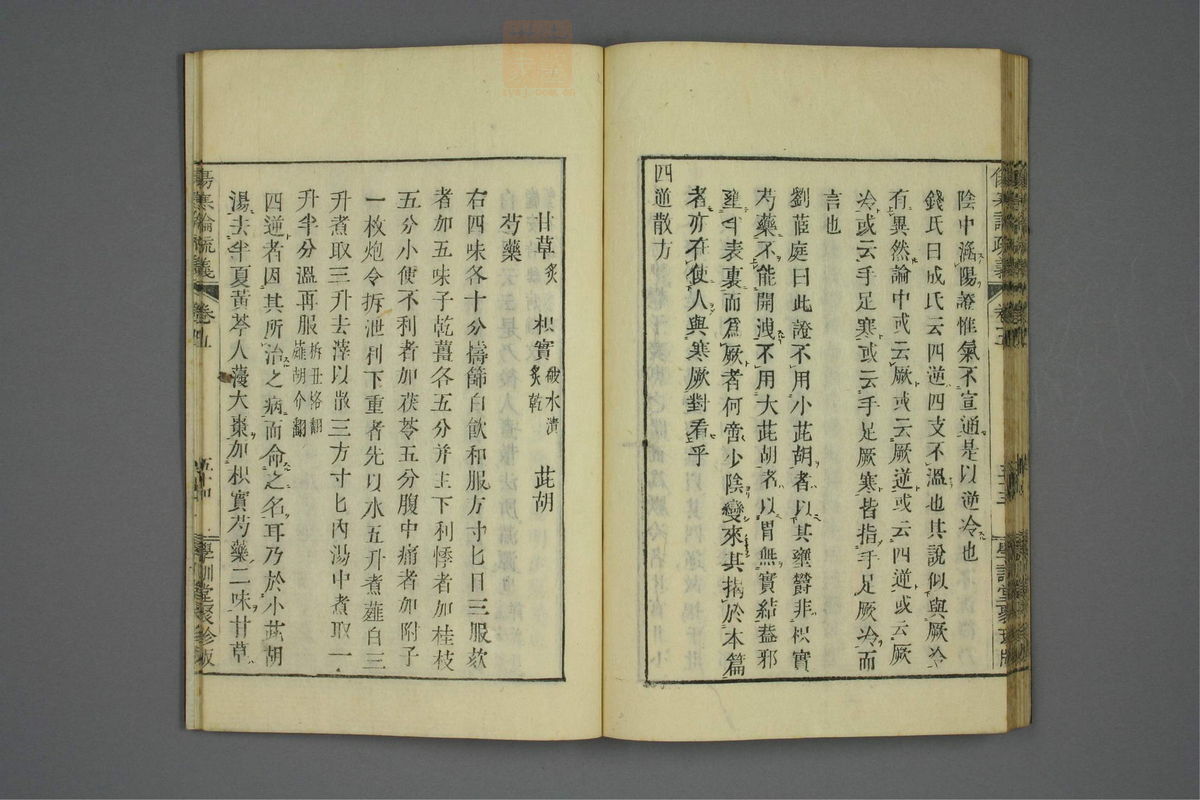 陰中滀陽證惟氣不宣通是以逆冷也
錢氏曰成氏云四逆四支不溫也其說似與厥冷
有異然論中或云厥或云厥逆或云四逆或云厥
冷或云手足寒或云手足厥寒皆指手足厥冷而
言也
劉茝庭曰此證不用小茈胡者以其壅鬱非枳實
芍藥不能開洩不用大茈胡者以胃無實結蓋邪
壅半表裏而爲厥者何啻少陰變來其揭於本篇
者亦在使人與寒厥對看乎
四逆散方
傷寒論疏義
卷五
五十三
學訓堂聚珍版
甘草炙 枳實破水漬炙乾 茈胡
芍藥
右四味各十分擣篩白飲和服方寸匕日三服欬
者加五味子乾薑各五分并主下利悸者加桂枝
五分小便不利者加茯苓五分腹中痛者加附子
一枚炮令拆泄利下重者先以水五升煮薤白三
升煮取三升去滓以散三方寸匕內湯中煮取一
升半分溫再服拆丑格翻薤胡介翻
四逆者因其所治之病而命之名耳乃於小茈胡
湯去半夏黃芩人蓡大棗加枳實芍藥二味甘草
傷寒論疏義
卷五
五十四
學訓堂聚珍版